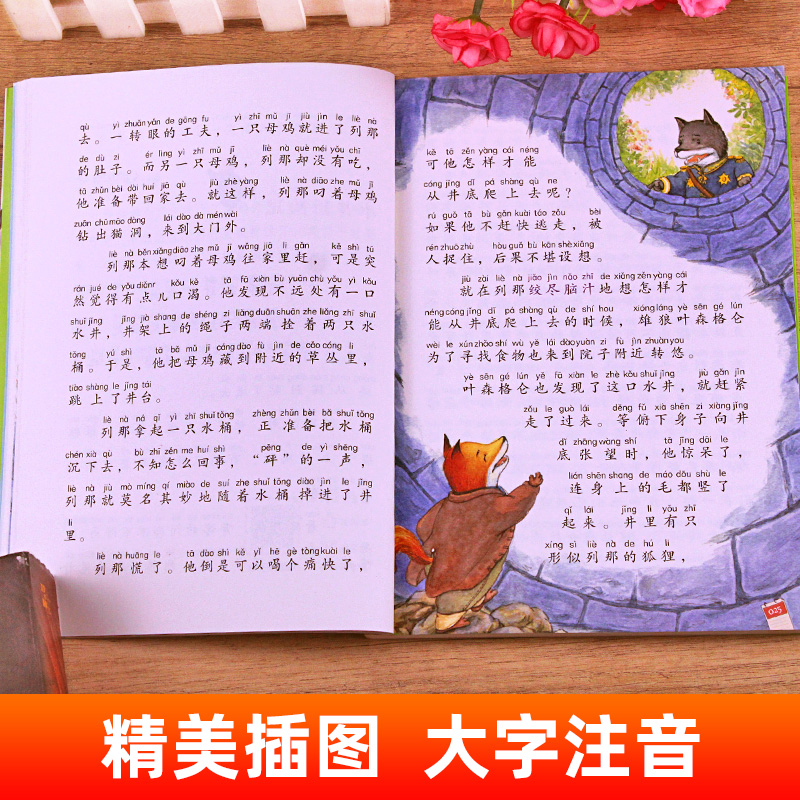 qù yì zhuǎn yǎn de gōng fu yì zhī mǔ jī jiù jìn le liè nà
去。一转眼的工夫，一只母鸡就进了列那
de dù zi ér lìng yì zhī mǔ jī liè nà què méi yǒu chī
的肚子。而另一只母鸡，列那却没有吃，
tā zhǔn bèi dài huí jiā qù jiù zhè yàng liè nà diāo zhe mǔ jī
他准备带回家去。就这样，列那叼着母鸡
zuān chū māo dòng lái dào dà mén wài
钻出猫洞，来到大门外。
liè nà běn xiǎng diāo zhe mǔ jī wǎng jiā lǐ gǎn kě shì tū
列那本想叼着母鸡往家里赶，可是突
rán jué de yǒu diǎnr kǒu kě tā fā xiàn bù yuǎn chù yǒu yì kǒu
然觉得有点儿口渴。他发现不远处有一口
shuǐ jǐng jǐng jià shang de shéng zi liǎng duān shuān zhe liǎng zhī shuǐ
水井，井架上的绳子两端拴着两只水
tǒng yú shì tā bǎ mǔ jī cáng dào fù jìn de cǎo cóng lǐ
桶。于是，他把母鸡藏到附近的草丛里，
tiào shàng le jǐng tái
跳上了井台。
liè nà ná qǐ yì zhī shuǐ tǒng zhèng zhǔn bèi bǎ shuǐ tǒng
列那拿起一只水桶，正准备把水桶
chén xià qù bù zhī zěn me huí shì pēng de yì shēng
沉下去，不知怎么回事，“砰”的一声，
liè nà jiù mò míng qí miào de suí zhe shuǐ tǒng diào jìn le jǐng
列那就莫名其妙地随着水桶掉进了井
lǐ
里。
liè nà huāng le tā dào shì kě yǐ hē gè tòng kuài le
列那慌了。他倒是可以喝个痛快了，
kě tā zěn yàng cái néng
可他怎样才能
cóng jǐng dǐ pá shàng qù ne
从井底爬上去呢？
rú guǒ tā bù gǎn kuài táo zǒu bèi
如果他不赶快逃走，被
rén zhuō zhù hòu guǒ bù kān shè xiǎng
人捉住，后果不堪设想。
jiù zài liè nà jiǎo jìn nǎo zhī de xiǎng zěn yàng cái
就在列那绞尽脑汁地想怎样才
néng cóng jǐng dǐ pá shàng qù de shí hou xióng láng yè sēn gé lún
能从井底爬上去的时候，雄狼叶森格仑
wèi le xún zhǎo shí wù yě lái dào yuàn zi fù jìn zhuàn you
为了寻找食物也来到院子附近转悠。
yè sēn gé lún yě fā xiàn le zhè kǒu shuǐ jǐng jiù gǎn jǐn
叶森格仑也发现了这口水井，就赶紧
zǒu le guò lái děng fǔ xià shēn zi xiàng jǐng
走了过来。等俯下身子向井
dǐ zhāng wàng shí tā jīng dāi le
底张望时，他惊呆了，
lián shēn shang de máo dōu shù le
连身上的毛都竖了
qǐ lái jǐng lǐ yǒu zhī
起来。井里有只
xíng sì liè nà de hú li
形似列那的狐狸，
025
精美插图 大字注音